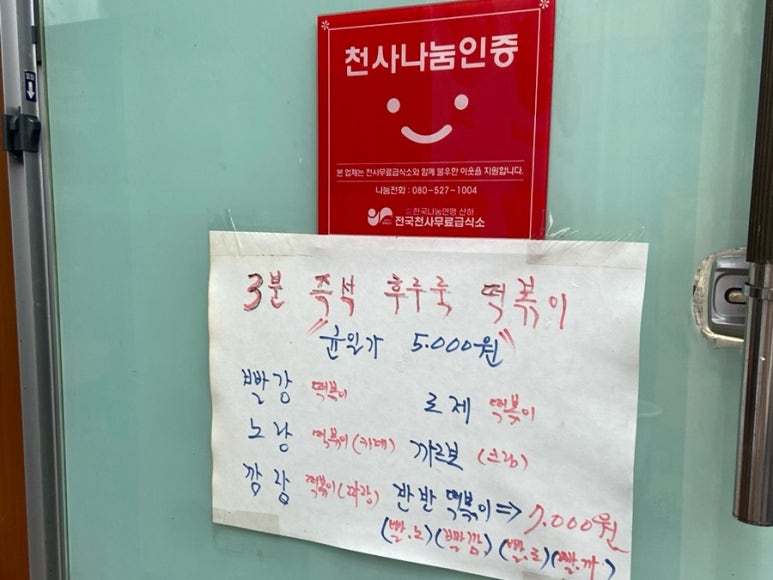 천사나눔인증
본 업체는 천사무료급식소와 함께 불우한 이웃을 지원합니다.
나눔전화 : 080-527-1004
한국나눔연맹 산하
전국천사무료급식소
3분 즉석 후루룩 떡볶이
"균일가 5.000원"
빨강 떡볶이 로제 떡볶이
노랑 떡볶이(카레) 까르보 (크림)
깜장 떡볶이 반반 떡볶이=> 7.000원
(빨.노)(빨깜)(빨.로)(빨.까)